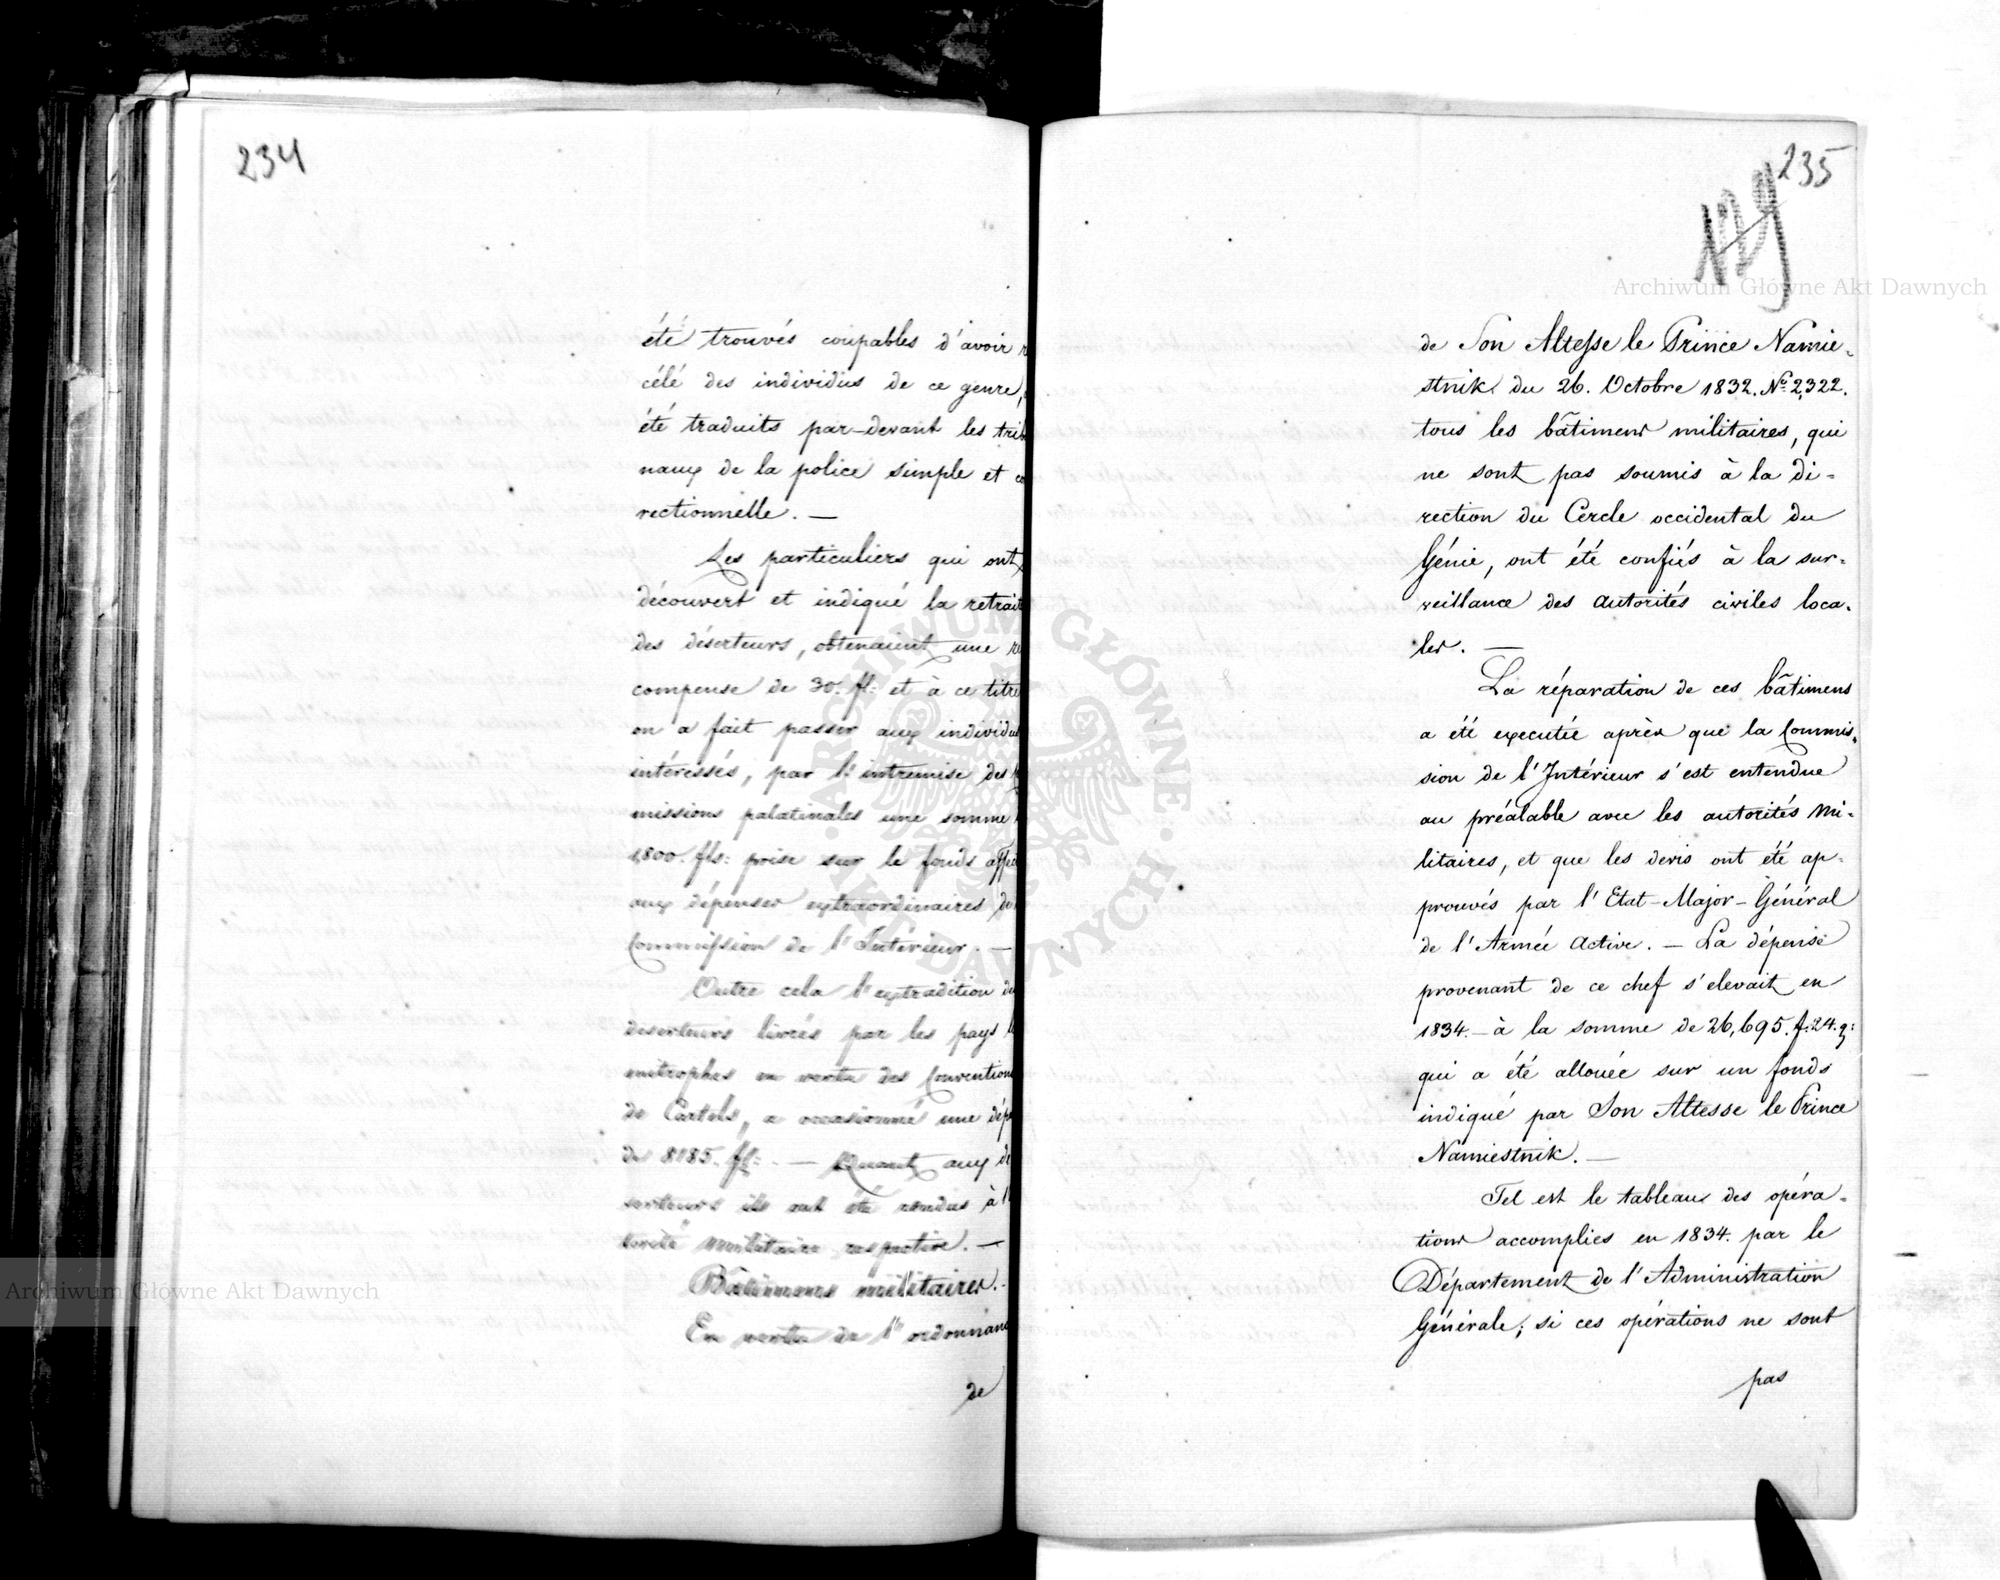 234
été trouvés coupables d'avoir r
célé des individus de ce genre,
été traduits par-devant les trib
naux de la police simple et co
rectionnelle. —
Les particuliers qui ont
découvert et indiqué la retrait
des déserteurs, obtenaient une ré
compense de 30. fl: et à ce titre
on a fait passer aux individu
intéressés, par l'intremise des
missions palatinales une somme
1,800. fls: prise sur le fonds affec
aux dépenses extraordinaires de
Commission de l'Intérieur. —
Outre cela l'extradition de
déserteurs livrés par les pays li
mitrophes en vertu des Convention
de Cartels, a occasionné une dép
de 8185. fl: — Quant aux dé
serteurs ils ont été rendus à l'
torité militaire respective. —
Bâtimens militaires. -
En vertu de l'ordonnanc
de
235
129
de Son Altesse le Prince Namie-
stnik du 26. Octobre 1832. No 2,322.
tous les bâtimens militaires, qui
ne sont pas soumis à la di-
rection du Cercle occidental du
Génie, ont été confiés à la sur-
veillance des autorités civiles loca-
les. —
La réparation de ces bâtimens
a été executée après que la Commis-
sion de l'Intérieur s'est entendue
au préalable avec les autorités mi-
litaires, et que les devis ont été ap-
prouvés par l'Etat-Major-Général
de l'Armée Active. — La dépense
provenant de ce chef s'elevait en
1834. — à la somme de 26,695. f: 24. g:
qui a été allouée sur un fonds
indiqué par Son Altesse le Prince
Namiestnik. —
Tel est le tableau des opéra-
tions accomplies en 1834. par le
Département de l'Administration
Générale; si ces opérations ne sont
pas
Archiwum Główne Akt Dawnych
Archiwum Główne Akt Dawnych
ARCHIWUM GŁÓWNE · AKT DAWNYCH ·